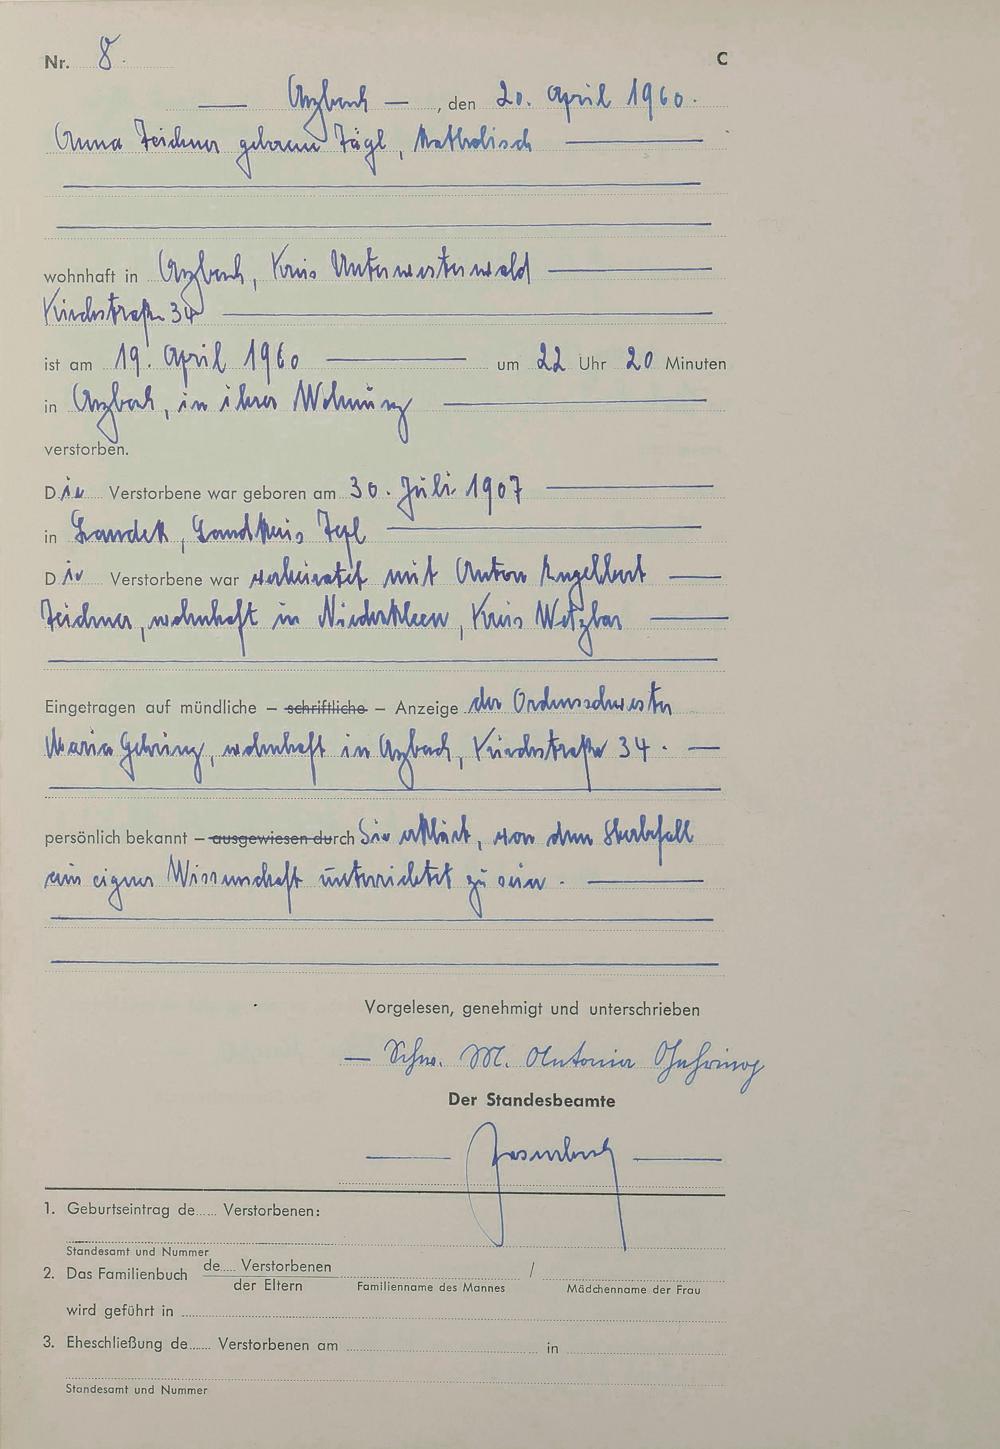 Nr. 8. C
— Arzbach — , den 20. April 1960.
Anna Zeidner geborene Jägl, Katholisch
wohnhaft in Arzbach, Kreis Unterwesterwald
Kirchstraße 34
ist am 19. April 1960 um 22 Uhr 20 Minuten
in Arzbach, in ihrer Wohnung
verstorben.
Die Verstorbene war geboren am 30. Juli 1907
in Landek, Landkreis Tepl
Die Verstorbene war verheiratet mit Anton Engelbert
Zeidner, wohnhaft in Niederkleen, Kreis Wetzlar
Eingetragen auf mündliche – schriftliche – Anzeige der Ordensschwester
Maria Gehring, wohnhaft in Arzbach, Kirchstraße 34. —
persönlich bekannt – ausgewiesen durch Sie erklärt, von dem Sterbefall
aus eigner Wissenschaft unterrichtet zu sein.
Vorgelesen, genehmigt und unterschrieben
— Schw. M. Antonia Gehring
Der Standesbeamte
1. Geburtseintrag de...... Verstorbenen:
Standesamt und Nummer
2. Das Familienbuch de..... Verstorbenen /
der Eltern Familienname des Mannes Mädchenname der Frau
wird geführt in
3. Eheschließung de...... Verstorbenen am in
Standesamt und Nummer